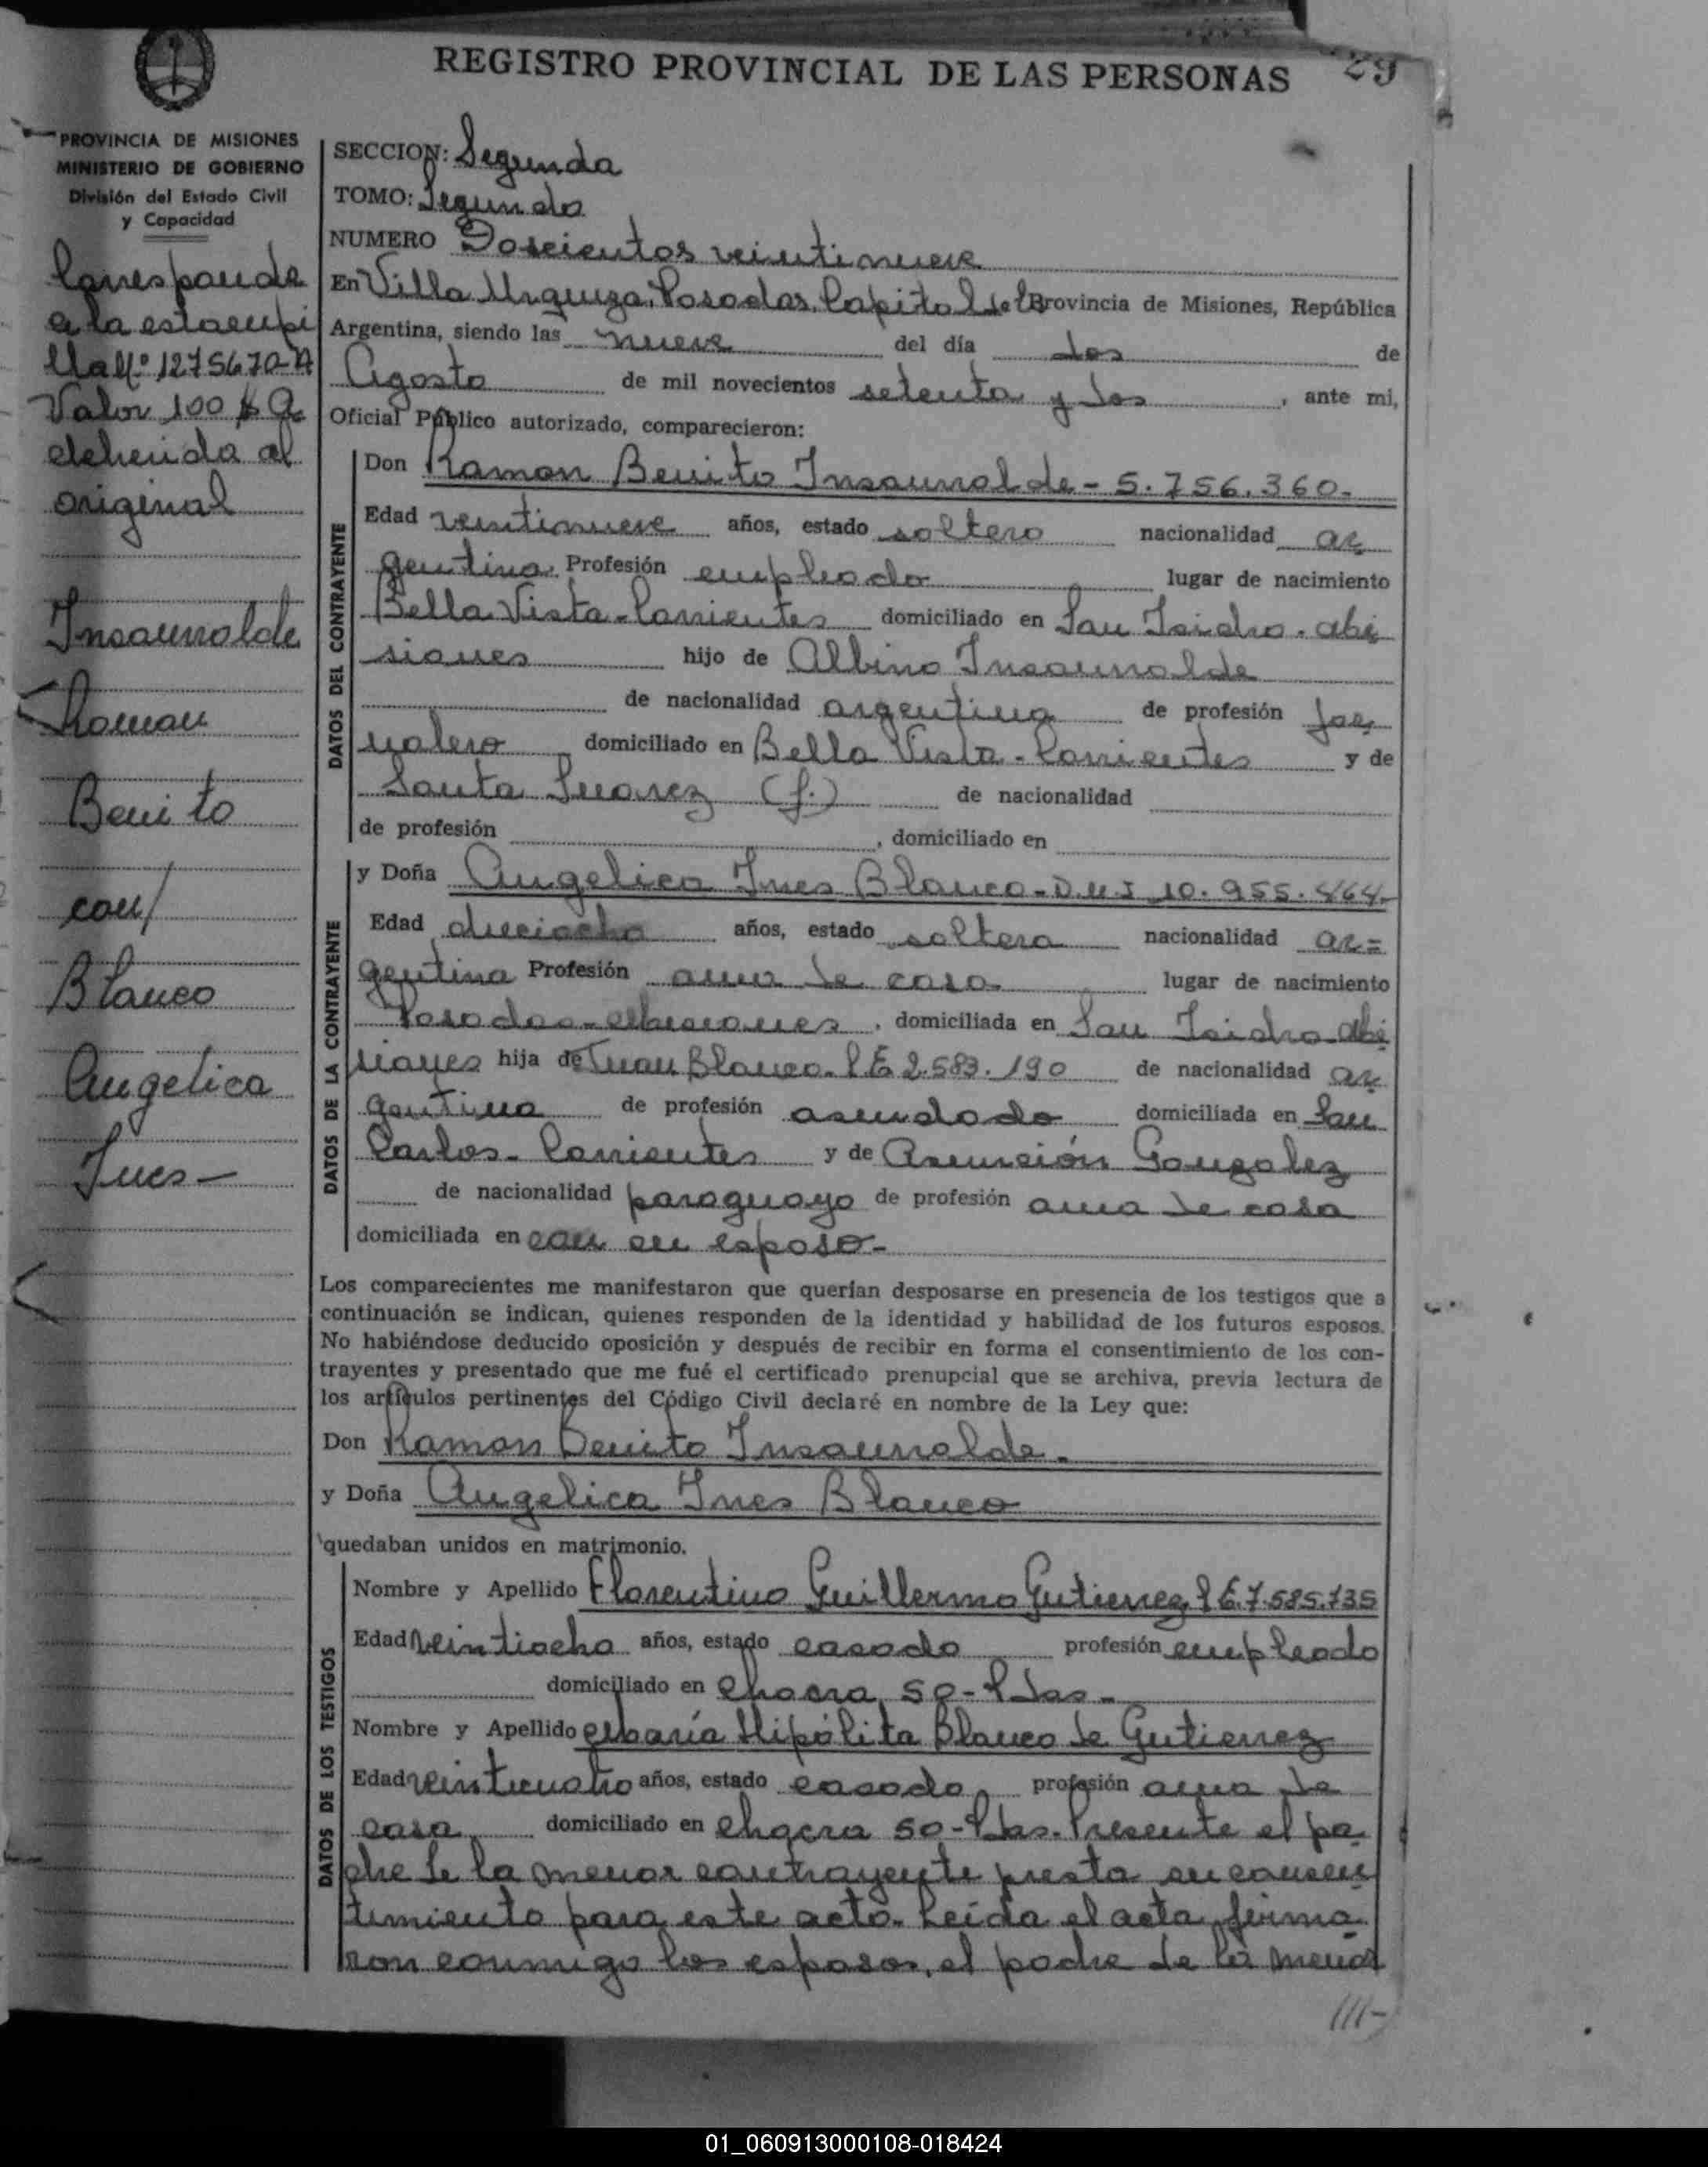 REGISTRO PROVINCIAL DE LAS PERSONAS 29
PROVINCIA DE MISIONES
MINISTERIO DE GOBIERNO
División del Estado Civil
y Capacidad
Corresponde
a la estampi
lla Nº 1275670-A
Valor 100 $ A
dherida al
original
Insaurralde
Ramon
Benito
con/
Blanco
Angelica
Ines-
SECCION: Segunda
TOMO: Segundo
NUMERO Doscientos veintinueve
En Villa Urquiza, Posadas, Capital de l Provincia de Misiones, República
Argentina, siendo las nueve del día dos de
Agosto de mil novecientos setenta y dos, ante mi,
Oficial Público autorizado, comparecieron:
DATOS DEL CONTRAYENTE
Don Ramon Benito Insaurralde - 5.756.360.-
Edad veintinueve años, estado soltero nacionalidad ar
gentina Profesión empleado lugar de nacimiento
Bella Vista - Corrientes domiciliado en San Isidro. Mi
siones hijo de Albino Insaurralde
de nacionalidad argentina de profesión jor
nalero domiciliado en Bella Vista - Corrientes y de
Santa Suarez (f.) de nacionalidad
de profesión , domiciliado en
DATOS DE LA CONTRAYENTE
y Doña Angelica Ines Blanco - D.N.I. 10.955.464-
Edad dieciocho años, estado soltera nacionalidad ar=
gentina Profesión ama de casa lugar de nacimiento
Posadas - Misiones, domiciliada en San Isidro - Mi
siones hija de Juan Blanco. L E 2.583.190 de nacionalidad ar
gentina de profesión domiciliada en San
Carlos - Corrientes y de Asunción Gonzalez
de nacionalidad paraguayo de profesión ama de casa
domiciliada en con su esposo-
Los comparecientes me manifestaron que querían desposarse en presencia de los testigos que a
continuación se indican, quienes responden de la identidad y habilidad de los futuros esposos.
No habiéndose deducido oposición y después de recibir en forma el consentimiento de los con-
trayentes y presentado que me fué el certificado prenupcial que se archiva, previa lectura de
los artículos pertinentes del Código Civil declaré en nombre de la Ley que:
Don Ramon Benito Insaurralde.
y Doña Angelica Ines Blanco
quedaban unidos en matrimonio.
DATOS DE LOS TESTIGOS
Nombre y Apellido Florentino Guillermo Gutierrez L E.7.585.735
Edad veintiocho años, estado casado profesión empleado
domiciliado en Chacra 50 - Pdas -
Nombre y Apellido María Hipólita Blanco de Gutierrez
Edad veinticuatro años, estado casado profesión ama de
casa domiciliado en Chacra 50 - Pdas. Presente el pa
dre de la menor contrayente presta su consen
timiento para este acto. Leída el acta firma
ron conmigo los esposos, el padre de la menor
///-
01_060913000108-018424